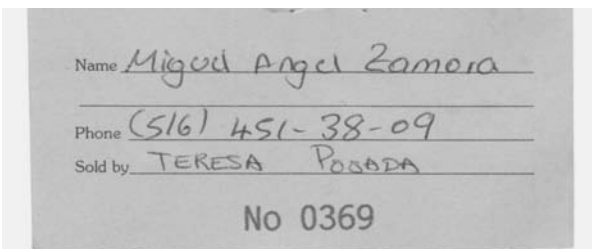 Name Miguel Angel Zamora
Phone (516) 451-38-09
Sold by TERESA POSADA
No 0369